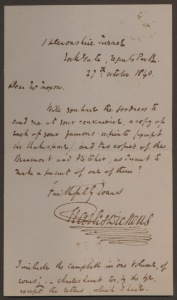 1 Devonshire Terrace
York Gate, Regents Park.
27th October 1840.
Dear Mr Moxon.
Will you have the goodness to
send me at your convenience, a copy of
each of your famous reprints (except
the Shakespeare) and two copies of the
Beaumont and Fletcher, as I want to
make a present of one of them?
Faithfully Yours
Charles Dickens
I include the Campbell in one volume, of
course,
except the letters which I have.